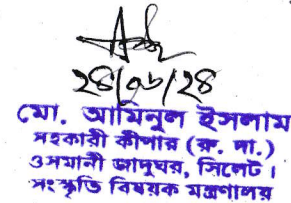 ২৪/০৬/২৪
মো. আমিনুল ইসলাম
সহকারী কীপার (রু. দা.)
ওসমানী জাদুঘর, সিলেট।
সংস্কৃতি বিষয়ক মন্ত্রণালয়